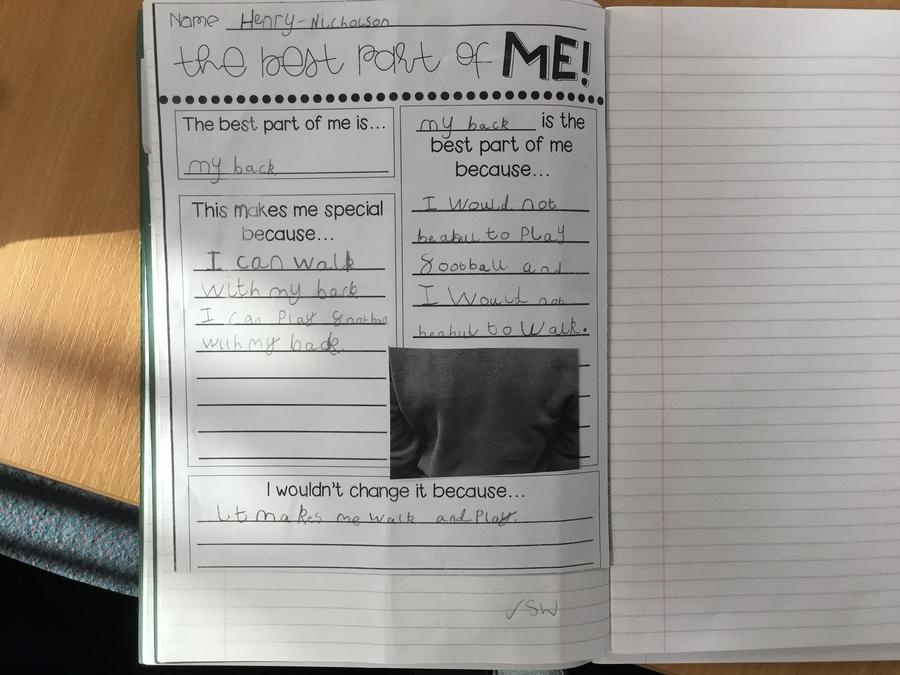 Name Henry-Nicholson
the best part of ME!
The best part of me is...
my back
This makes me special
because...
I can walk
with my back
I can Play football
with my back.
my back is the
best part of me
because...
I Would not
beabul to Play
football and
I Would not
beabul to Walk.
I wouldn't change it because...
it makes me walk and Play.
✓SW